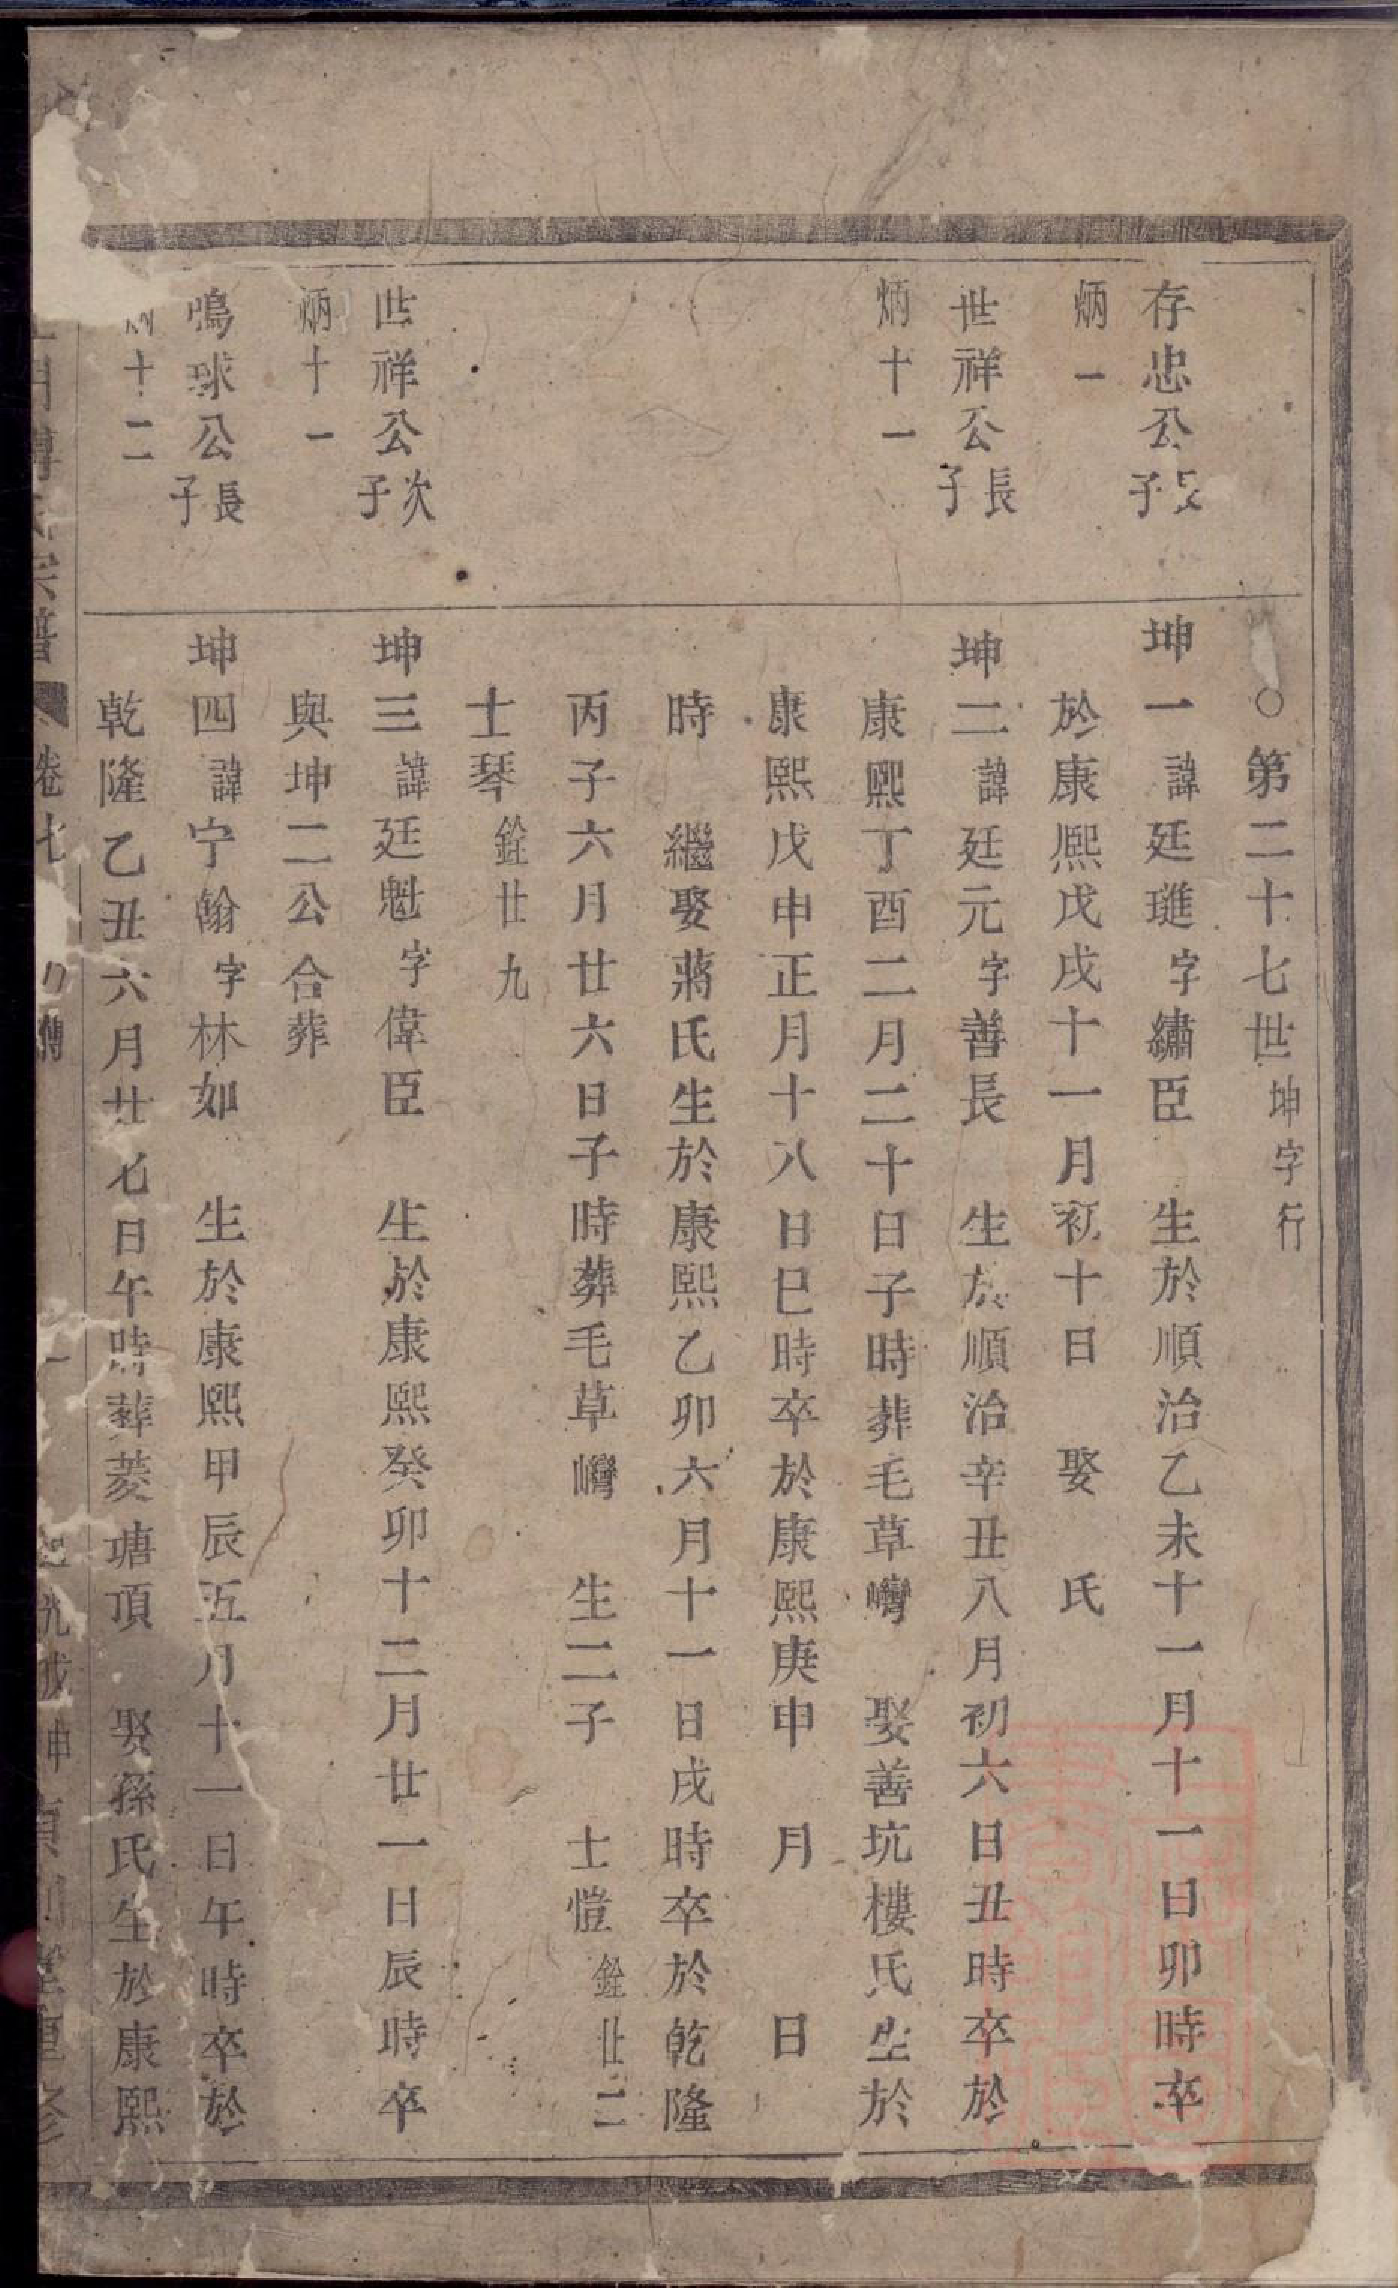 ○第二十七世坤字行
存忠公長子
坤一諱廷璡字繡臣　生於順治乙未十一月十一日卯時卒
炳一
於康熙戊戌十一月初十日　娶　氏
世祥公長子
坤二諱廷元字善長　生於順治辛丑八月初六日丑時卒於
炳十一
康熙丁酉二月二十日子時葬毛草灣　娶善坑樓氏生於
康熙戊申正月十八日巳時卒於康熙庚申　月　日
時　繼娶蔣氏生於康熙乙卯六月十一日戌時卒於乾隆
丙子六月廿六日子時葬毛草灣　生二子　士愷銓廿二
士琴銓廿九
世祥公次子
坤三諱廷魁字偉臣　生於康熙癸卯十二月廿一日辰時卒
炳十一
與坤二公合葬
鳴球公長子
坤四諱宁翰字林如　生於康熙甲辰五月十一日午時卒於
炳十二
乾隆乙丑六月廿七日午時葬菱塘頂　娶孫氏生於康熙
宗譜　卷七　傳　重修